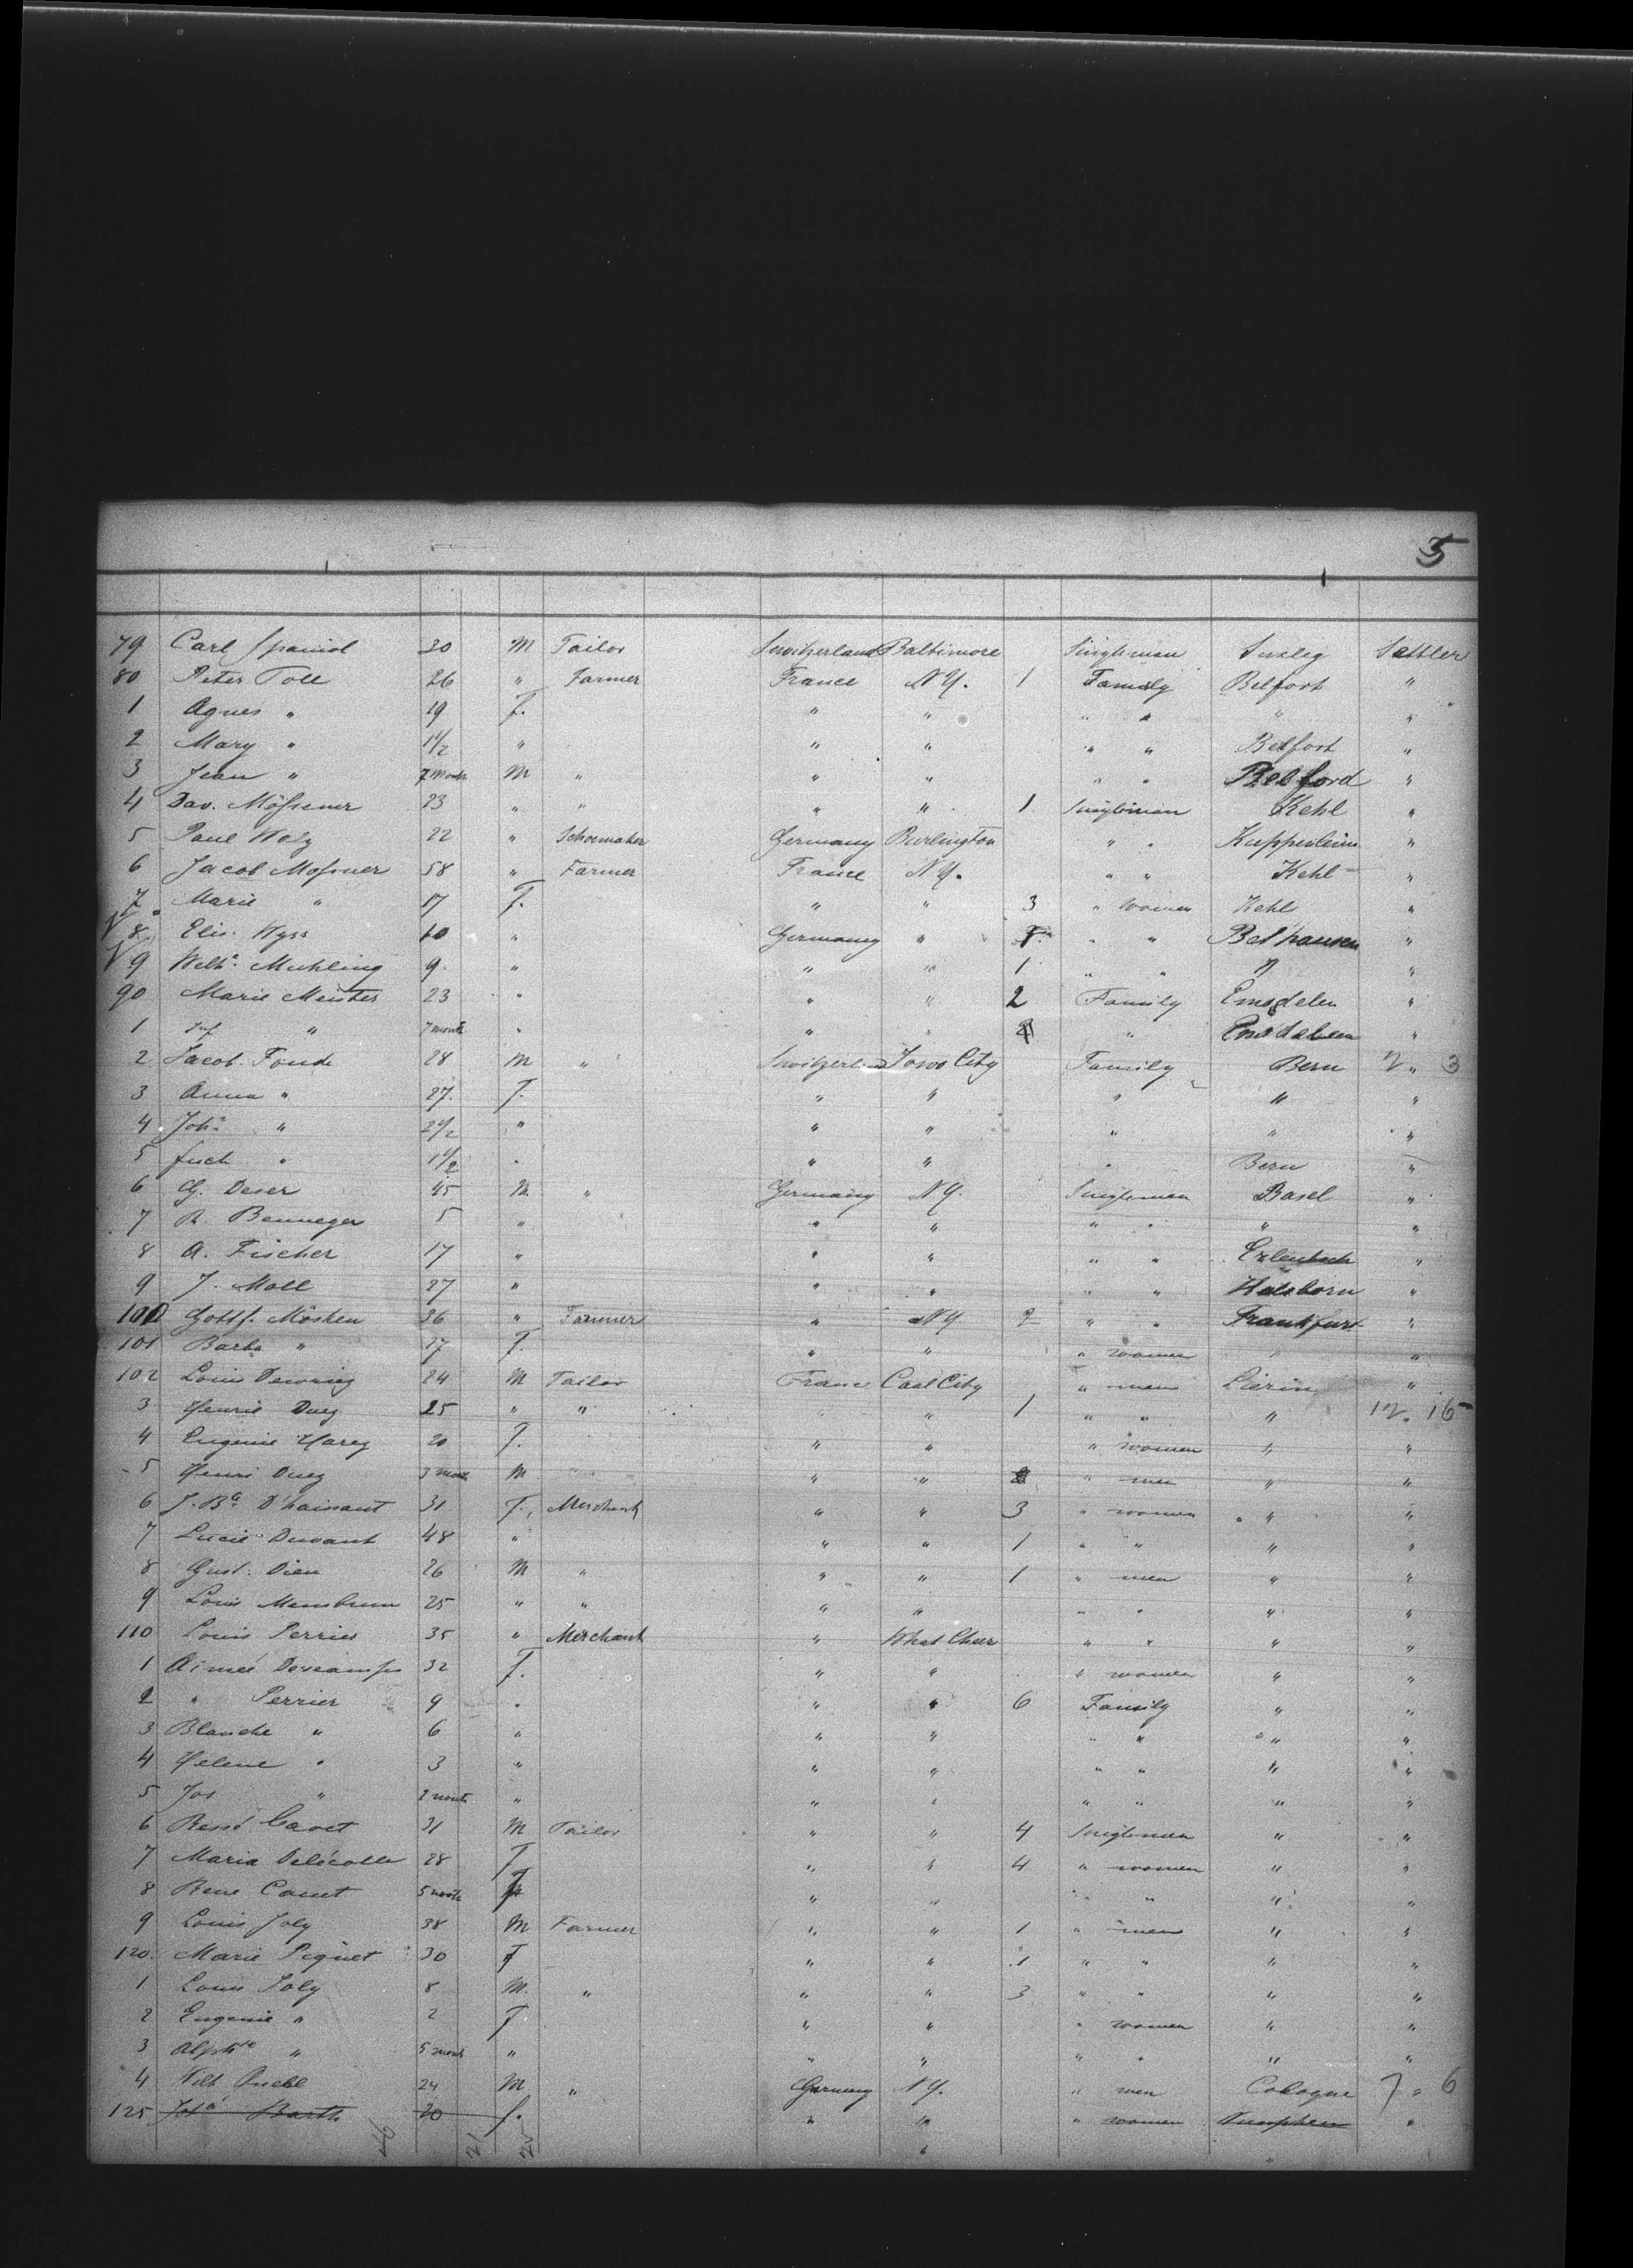 5
79 Carl Spaniol 30 M Tailor Switzerland Baltimore Singleman Settler
80 Peter Toll 26 " Farmer France N.Y. 1 Family Belfort "
1 Agnes " 19 F. " " " " " "
2 Mary " 1 1/2 " " " " " Belfort "
3 Jean " 7 month M " " " " " Belford "
4 Dav. Mössner 23 " " " " 1 Singleman Kehl "
5 Paul Walz 22 " Schoemaker Germany Burlington " " Kuppenheim "
6 Jacob Mossner 58 " Farmer France N.Y. " " Kehl "
7 Marie " 17 F. " " 3 " women Kehl "
8 Elis. Wyss 10 " Germany " " " "
9 Wilh. Muhling 9 " " " 1 " " " "
90 Marie Meister 23 " " " 2 Family "
1 Inf " 7 month " " " " "
2 Jacob Fonde 28 M " Switzerland Iowa City Family Bern 2 " 3
3 Anna " 27 F. " " " " "
4 Joh. " 2 1/2 " " " " " "
5 " 1 1/2 " " " " Bern "
6 G. Deser 45 M. " Germany N.Y. Singlemen Basel "
7 R. Benneger 5 " " " " " " "
8 A. Fischer 17 " " " " " Erlenbach "
9 J. Moll 27 " " " " " "
100 Gottf. Mösken 36 " Farmer " N.Y. 2 " " Frankfurt "
101 Barba " 17 F. " " " women " "
102 Louis 24 M Tailor France Coal City " men Lierin "
3 Henrie Duez 25 " " " " 1 " " " 12 " 16
4 Eugenie Harez 20 F. " " " women " "
5 Henri Duez 3 mont. M " " " men " "
6 J. Bte D'hainaut 31 F. Merchant " " 3 " women " "
7 Lucie Duvant 48 " " " 1 " " " "
8 Gust. Dieu 26 M " " " 1 " men " "
9 Louis 25 " " " " " " " "
110 Louis Perrier 35 " Merchant " What Cheer " " " "
1 Aimée Descamps 32 F. " " " women " "
2 " Perrier 9 " " " 6 Family " "
3 Blanche " 6 " " " " " " "
4 Helene " 3 " " " " " " "
5 Jos " 2 mont. " " " " " " "
6 René Cavet 31 M Tailor " " 4 Singlemen " "
7 Maria Delécolle 28 F " " 4 " women " "
8 Rene Cauet 5 month " " " " " "
9 Louis Joly 38 M Farmer " " 1 " men " "
120. Marie Piquet 30 F " " 1 " " " "
1 Louis Joly 8 M. " " " 3 " " " "
2 Eugenie " 2 F " " " women " "
3 Alphse " 5 month " " " " " " "
4 Wilh 24 M " Germany N.Y. " men Cologne 7 " 6
125 Joha Barth 20 f. " " " women "
21